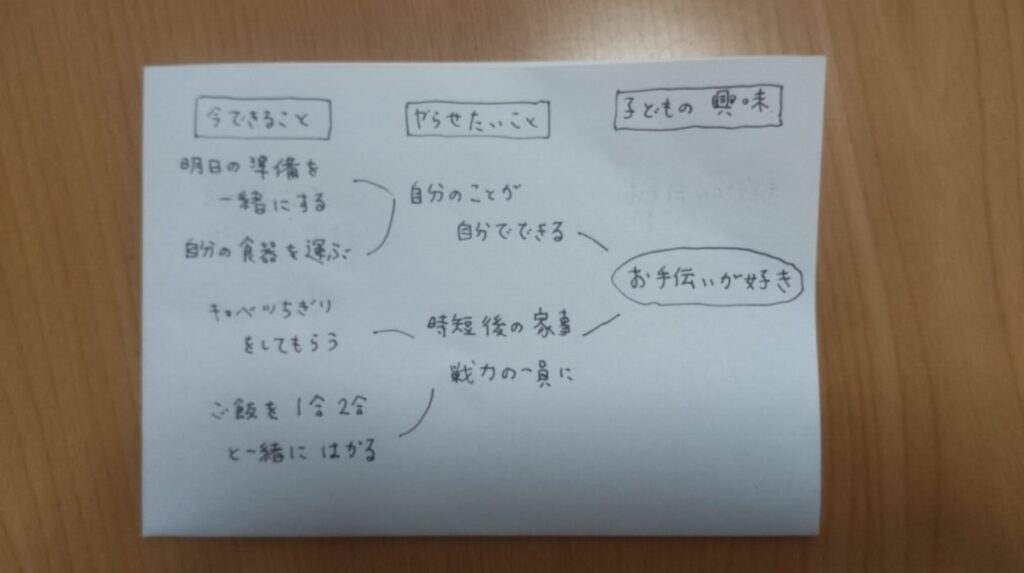 今できること
明日の準備を
一緒にする
自分の食器を運ぶ
キャベツちぎり
をしてもらう
ご飯を1合2合
と一緒にはかる
やらせたいこと
自分のことが
自分でできる
時短後の家事
戦力の一員に
子どもの興味
お手伝いが好き